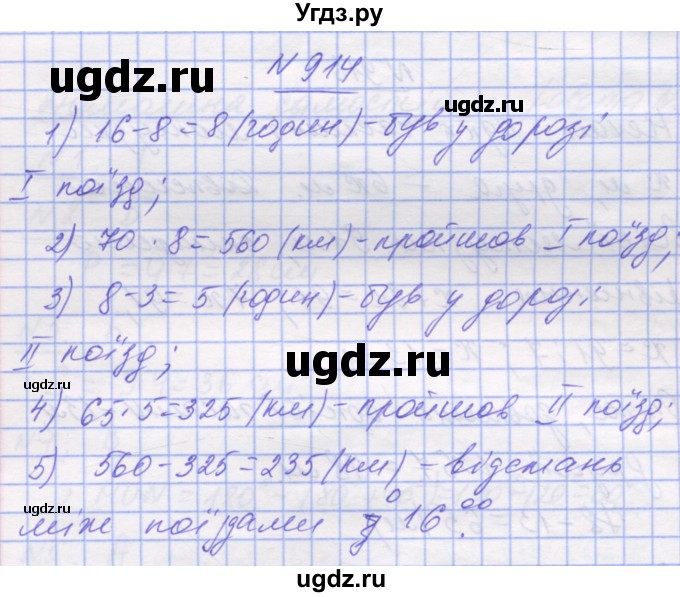 Угдз.ру
ugdz.ru
N 914
ugdz.ru
1) 16-8=8 (годин)-був у дорозі
I поїзд;
2) 70·8=560 (км)-пройшов I поїзд;
3) 8-3=5 (годин)-був у дорозі
ugdz.ru
II поїзд;
ugdz.ru
4) 65·5=325 (км)-пройшов II поїзд;
5) 560-325=235 (км)-відстань
між поїздами о 16⁰⁰.
ugdz.ru